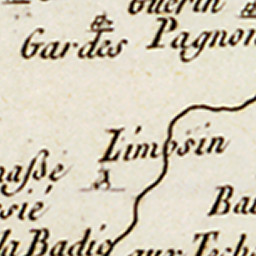 Guerin
Gardes
Pagnon
Limosin
nasse
sié
Ba
la Badio
aux Tech